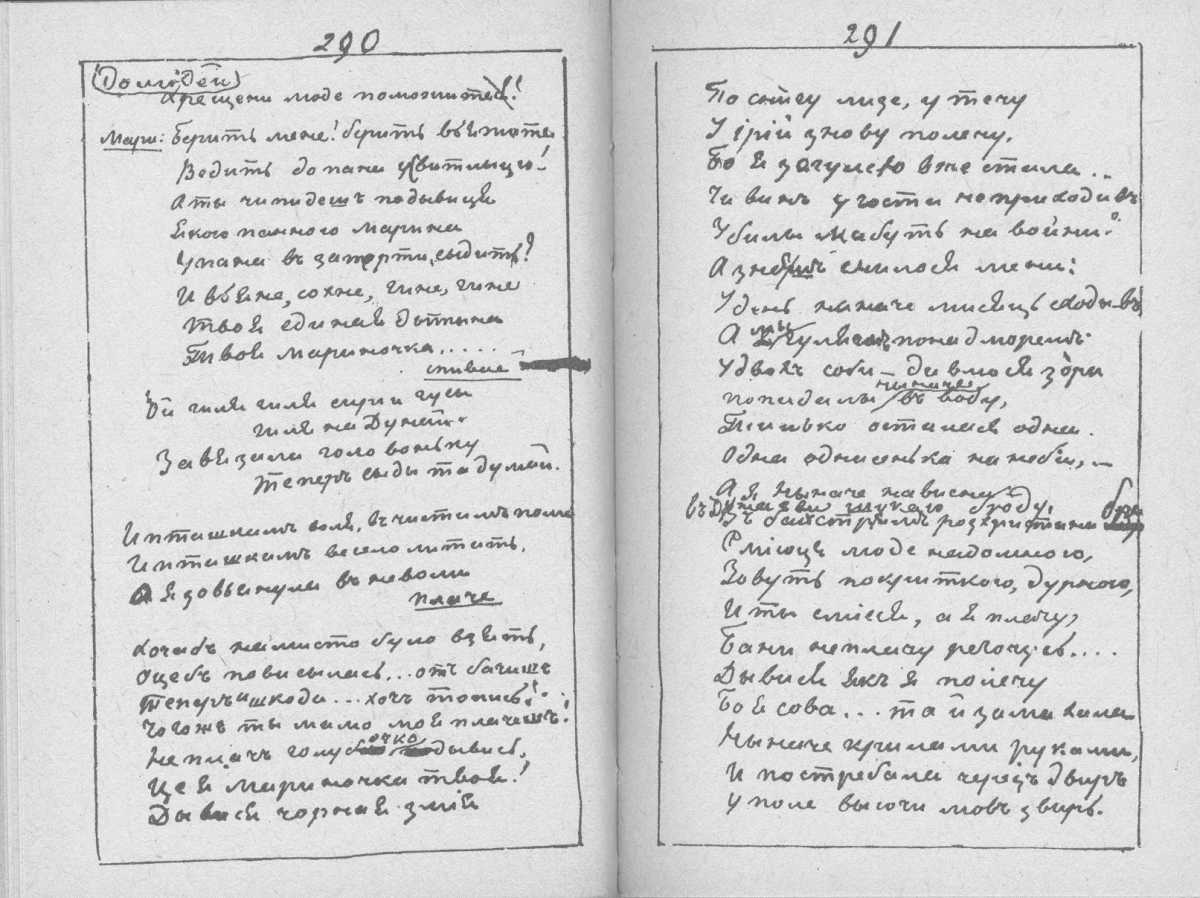 290
Домудей
Хрещени люде поможите!
Мари: Берить мене! берить вяжите
Ведить до пана у свитлыцю!
А ты чи пидешъ подывиця
Якою панною Марина
У пана въ заперти сыдить?
И вяне, сохне, гине, гине
Твоя едыная дытына
Твоя Мариночка.....
спивае
Ой гиля гиля сирии гусы
Гиля на Дунай.
Завязала головоньку
Теперь сыды та думай.
И пташкамъ воля, въ чистимъ поли
И пташкамъ весело литать,
А я зовьянула въ неволи
плаче
Хочабъ намисто було взять,
Оцебъ повисылась... отъ бачишъ
Теперъ и шкода... хочъ топысь!
Чогожъ ты мамо моя плачешъ?
Не плачъ голубочко дывись,
Це я Мариночка твоя!
Дывися чорная змія
291
По снигу лизе, утечу
У ірій знову полечу,
Бо я зозулею вже стала..
Чи винъ у гости не приходивъ
Убилы мабуть на войни?
А знаешъ снилося мени:
У день ныначе мисяць сходывъ,
А мы гуляемъ понад моремъ
У двохъ соби – дывлюся зори
попадалы ныначе въ воду,
Тилько осталася одна.
Одна однисенька на неби, –
А я ныначе нависна
въ Дунаеви шукаю броду,
Зъ байстрямъ розхристана бреду
Смиюця люде надомною,
Зовуть покриткою, дурною,
И ты смієся, а я плачу,
Ба ни не плачу регочусь....
Дывися якъ я полечу
Бо я сова... та й замахала
Ныначе крилами руками,
И пострибала черезъ двиръ
У поле выючи мовъ звиръ.